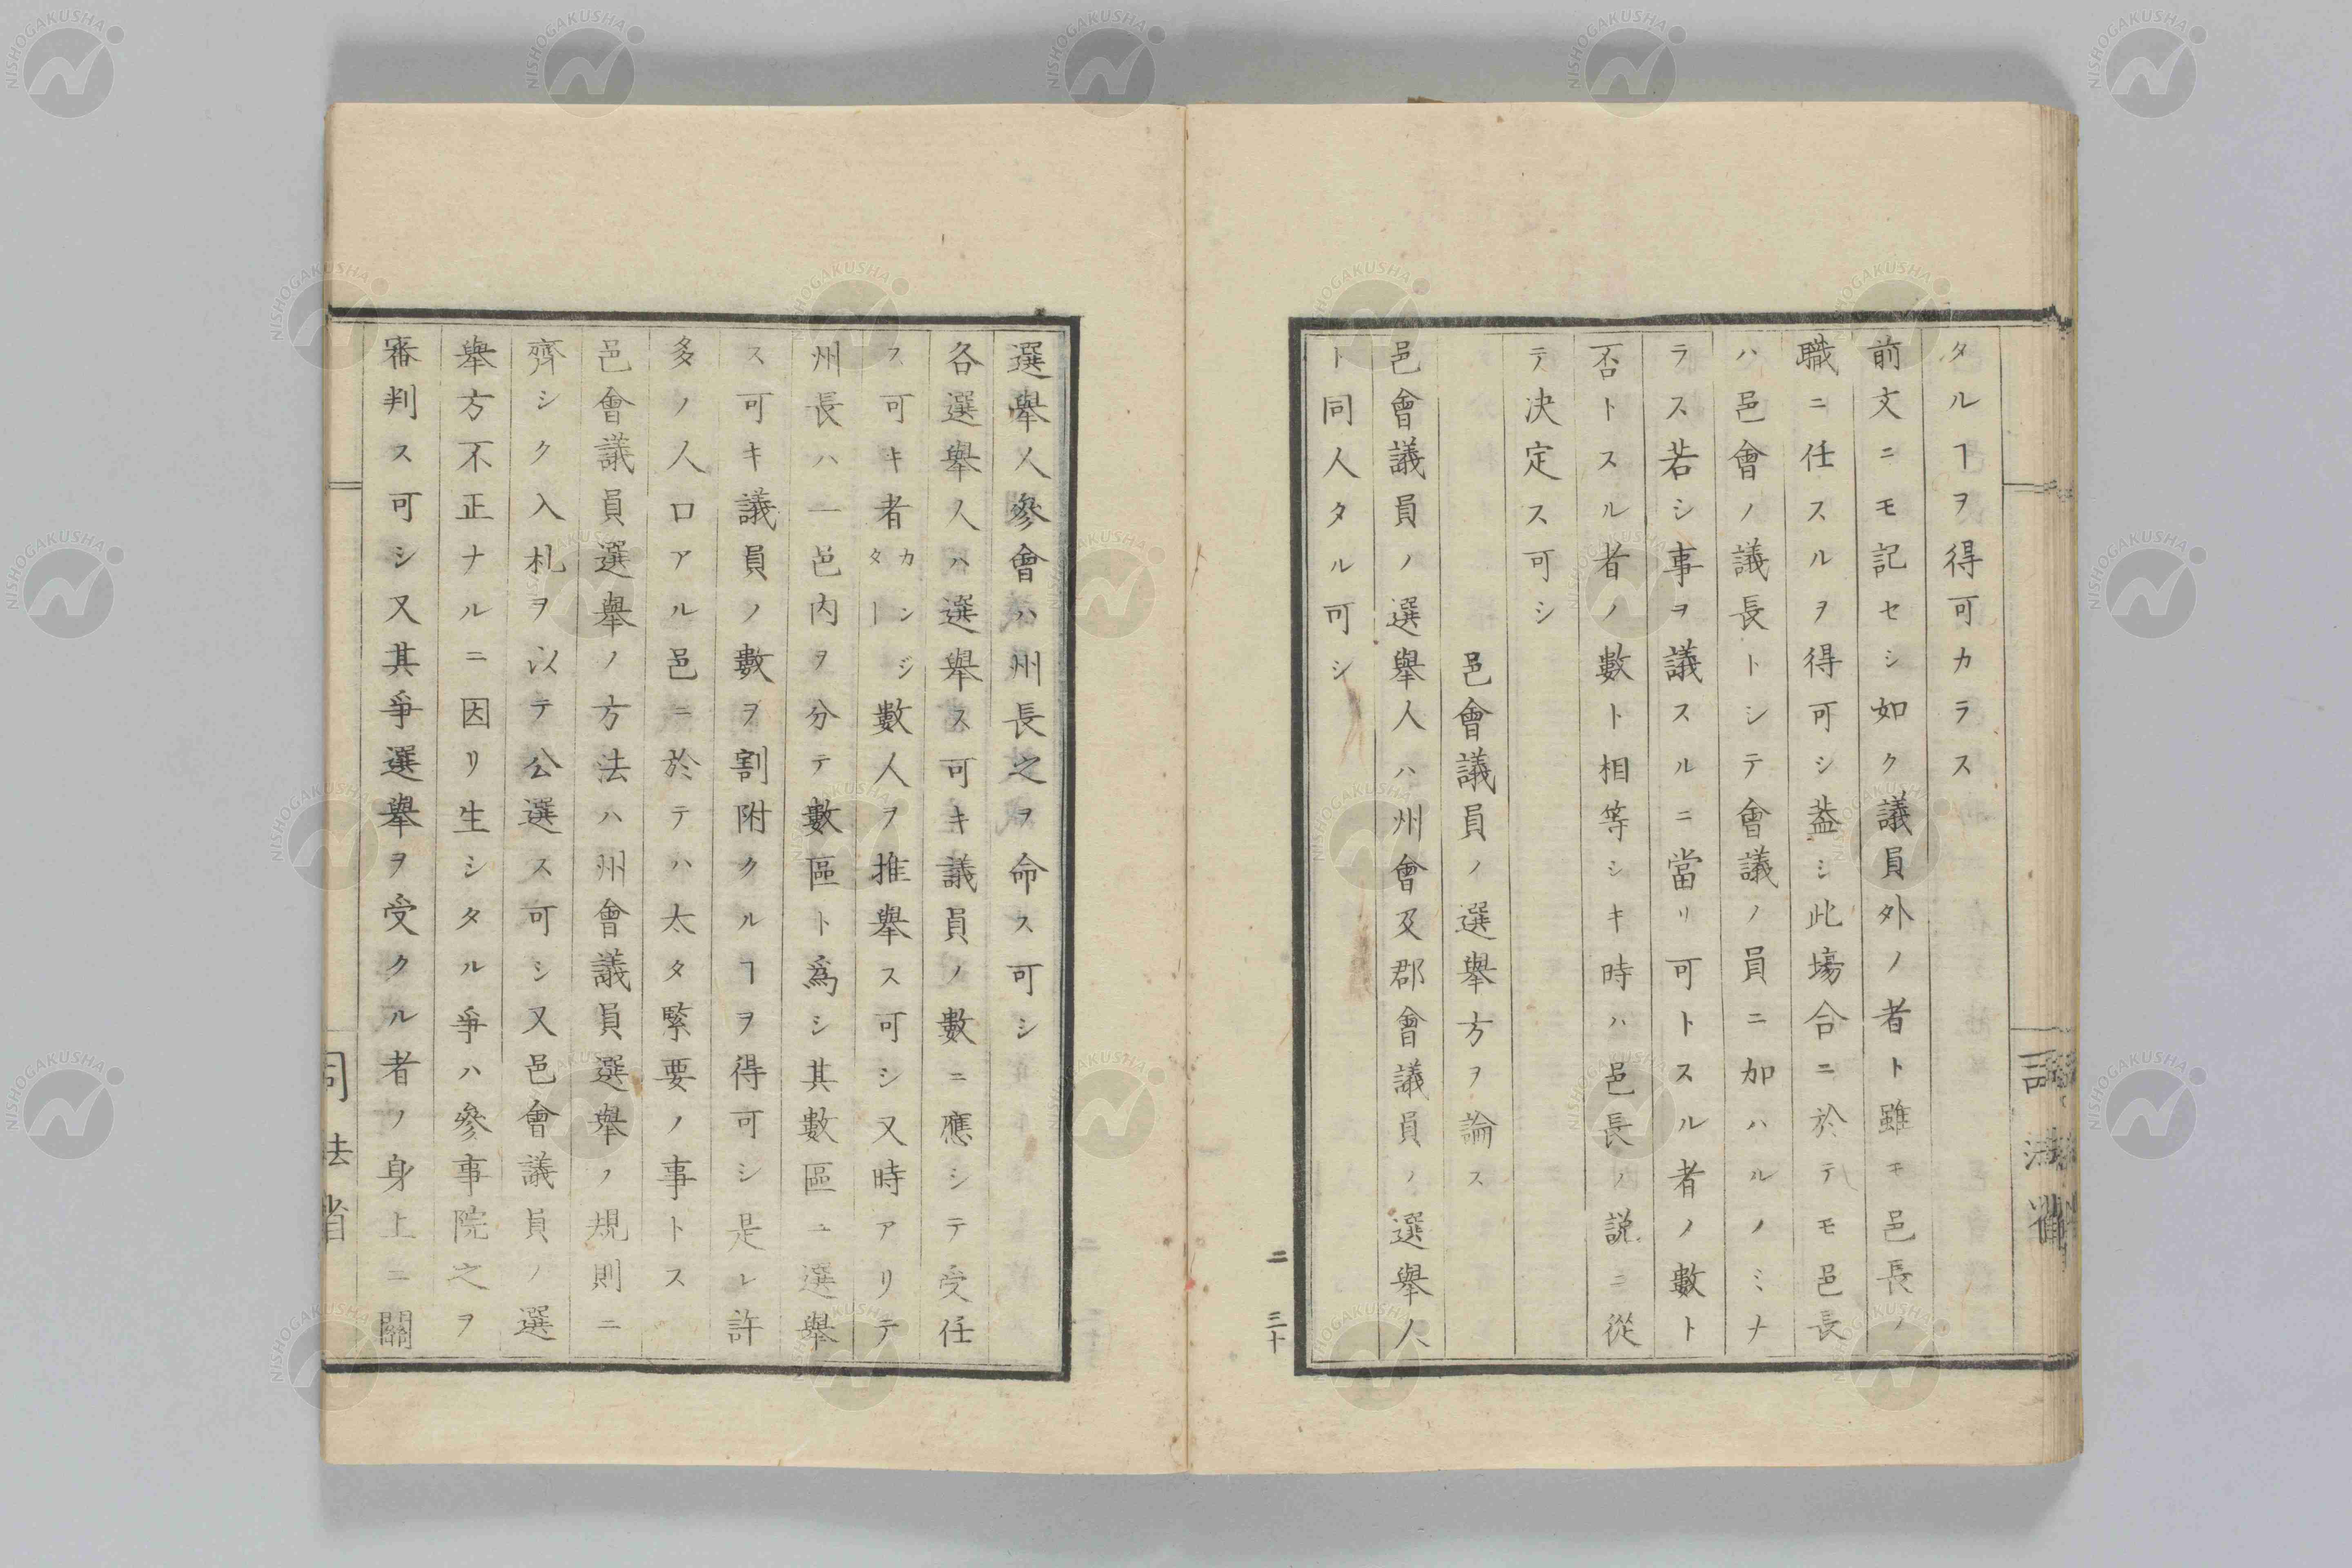 タルヿヲ得可カラス
前文ニモ記セシ如ク議員外ノ者ト雖モ邑長ノ
職ニ任スルヲ得可シ葢シ此塲合ニ於テモ邑長
ハ邑會ノ議長トシテ會議ノ員ニ加ハルノミナ
ラス若シ事ヲ議スルニ當リ可トスル者ノ數ト
否トスル者ノ數ト相等シキ時ハ邑長ノ説ニ從
テ决定ス可シ
邑會議員ノ選擧方ヲ論ス
邑會議員ノ選擧人ハ州會及郡會議員ノ選擧人
ト同人タル可シ
二 三十
選擧人參會ハ州長之ヲ命ス可シ
各選擧人ハ選擧ス可キ議員ノ數ニ應シテ受任
ス可キ者カンジダー數人ヲ推擧ス可シ又時アリテ
州長ハ一邑内ヲ分テ數區ト爲シ其數區ニ選擧
ス可キ議員ノ數ヲ割附クルヿヲ得可シ是レ許
多ノ人口アル邑ニ於テハ太タ緊要ノ事トス
邑會議員選擧ノ方法ハ州會議員選擧ノ規則ニ
齊シク入札ヲ以テ公選ス可シ又邑會議員ノ選
擧方不正ナルニ因リ生シタル爭ハ參事院之ヲ
審判ス可シ又其爭選擧ヲ受クル者ノ身上ニ關
司法省
NISHOGAKUSHA